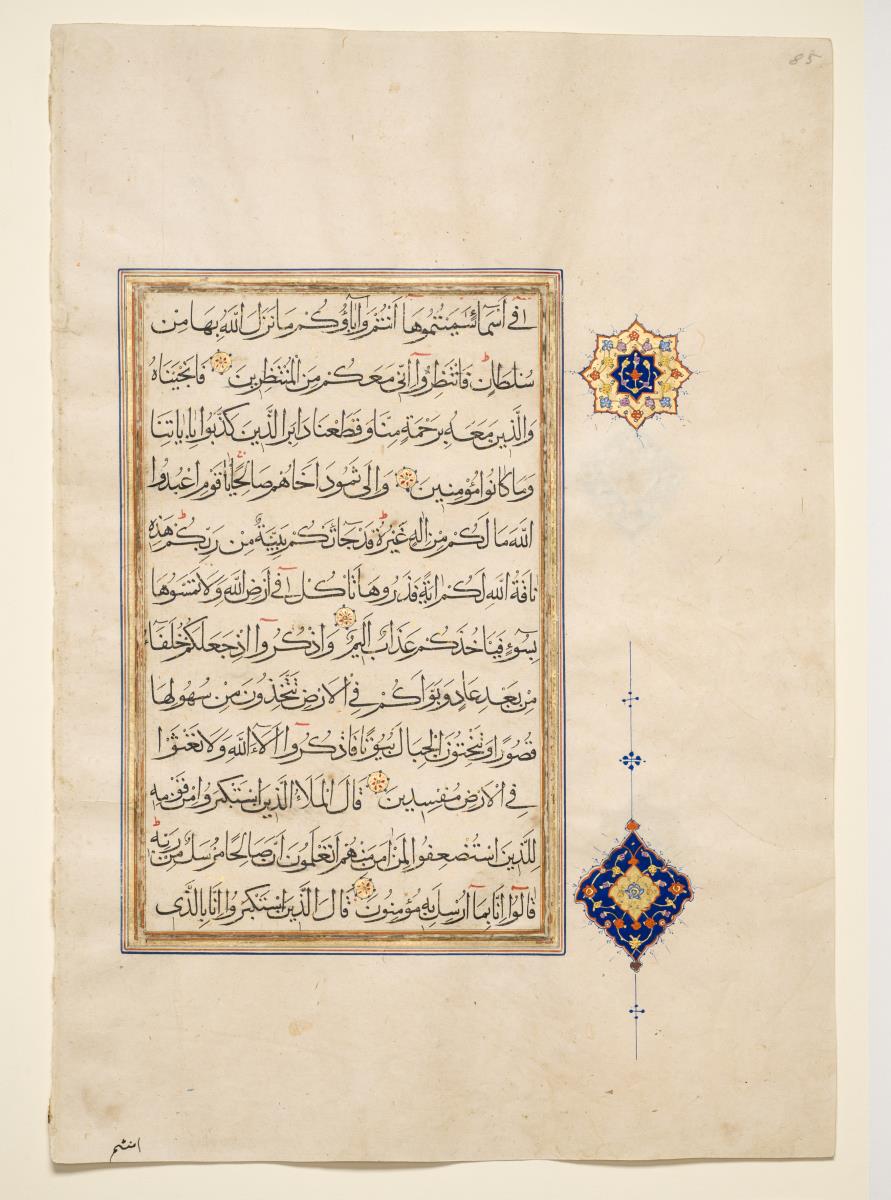 85
فِي أَسْمَاءٍ سَمَّيْتُمُوهَا أَنْتُمْ وَآبَاؤُكُمْ مَا نَزَّلَ اللَّهُ بِهَا مِنْ
سُلْطَانٍ فَانْتَظِرُوا إِنِّي مَعَكُمْ مِنَ الْمُنْتَظِرِينَ فَأَنْجَيْنَاهُ
وَالَّذِينَ مَعَهُ بِرَحْمَةٍ مِنَّا وَقَطَعْنَا دَابِرَ الَّذِينَ كَذَّبُوا بِآيَاتِنَا
وَمَا كَانُوا مُؤْمِنِينَ وَإِلَى ثَمُودَ أَخَاهُمْ صَالِحًا يَاقَوْمِ اعْبُدُوا
اللَّهَ مَا لَكُمْ مِنْ إِلَهٍ غَيْرُهُ قَدْ جَاءَتْكُمْ بَيِّنَةٌ مِنْ رَبِّكُمْ هَذِهِ
نَاقَةُ اللَّهِ لَكُمْ آيَةً فَذَرُوهَا تَأْكُلْ فِي أَرْضِ اللَّهِ وَلَا تَمَسُّوهَا
بِسُوءٍ فَيَأْخُذَكُمْ عَذَابٌ أَلِيمٌ وَاذْكُرُوا إِذْ جَعَلَكُمْ خُلَفَاءَ
مِنْ بَعْدِ عَادٍ وَبَوَّأَكُمْ فِي الْأَرْضِ تَتَّخِذُونَ مِنْ سُهُولِهَا
قُصُورًا وَتَنْحِتُونَ الْجِبَالَ بُيُوتًا فَاذْكُرُوا آلَاءَ اللَّهِ وَلَا تَعْثَوْا
فِي الْأَرْضِ مُفْسِدِينَ قَالَ الْمَلَأُ الَّذِينَ اسْتَكْبَرُوا مِنْ قَوْمِهِ
لِلَّذِينَ اسْتُضْعِفُوا لِمَنْ آمَنَ مِنْهُمْ أَتَعْلَمُونَ أَنَّ صَالِحًا مُرْسَلٌ مِنْ رَبِّهِ
قَالُوا إِنَّا بِمَا أُرْسِلَ بِهِ مُؤْمِنُونَ قَالَ الَّذِينَ اسْتَكْبَرُوا إِنَّا بِالَّذِي
امنتم